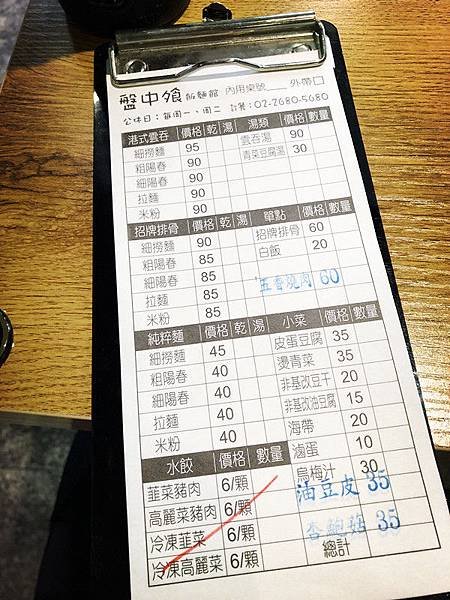 盤中飧 飯麵館 內用桌號____外帶口
公休日：每周一、周二 訂餐：02-2680-5680
港式雲吞 價格 乾 湯 湯類 價格 數量
細撈麵 95 雲吞湯 90
粗陽春 90 青菜豆腐湯 30
細陽春 90
拉麵 90
米粉 90
招牌排骨 價格 乾 湯 單點 價格 數量
細撈麵 90 招牌排骨 60
粗陽春 85 白飯 20
細陽春 85 五香燒肉 60
拉麵 85
米粉 85
純粹麵 價格 乾 湯 小菜 價格 數量
細撈麵 45 皮蛋豆腐 35
粗陽春 40 燙青菜 35
細陽春 40 非基改豆干 20
拉麵 40 非基改油豆腐 15
米粉 40 海帶 20
水餃 價格 數量 滷蛋 10
韭菜豬肉 6/顆 烏梅汁 30
高麗菜豬肉 6/顆 油豆皮 35
冷凍韭菜 6/顆 杏鮑菇 35
冷凍高麗菜 6/顆 總計